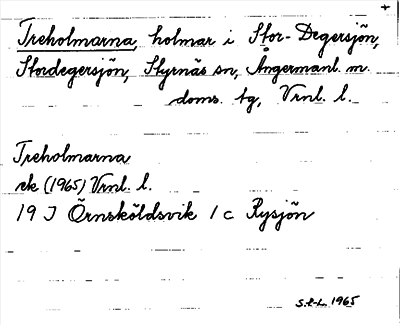 Treholmarna, holmar i Stor-Degersjön,
Stordegersjön, Styrnäs sn, Ångermanl. m.
doms. tg, Vrnl. l.
Treholmarna
ek (1965) Vrnl. l.
19 J Örnsköldsvik 1 c Rysjön
S.E-L. 1965